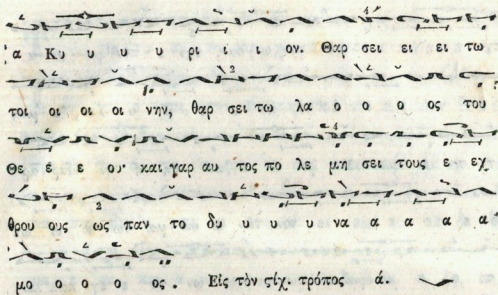 α Κυ υ υ υ ρι ι ι ον. Θαρ σει ει ει τω
τοι οι οι οι νην, θαρ σει τω λα ο ο ο ος του
Θε ε ε ο· και γαρ αυ τος πο λε μη σει τους ε εχ
θρου ους ως παν το δυ υ υ υ να α α α α
μο ο ο ο ος . Εἰς τὸν ϛίχ. τρόπος ά.